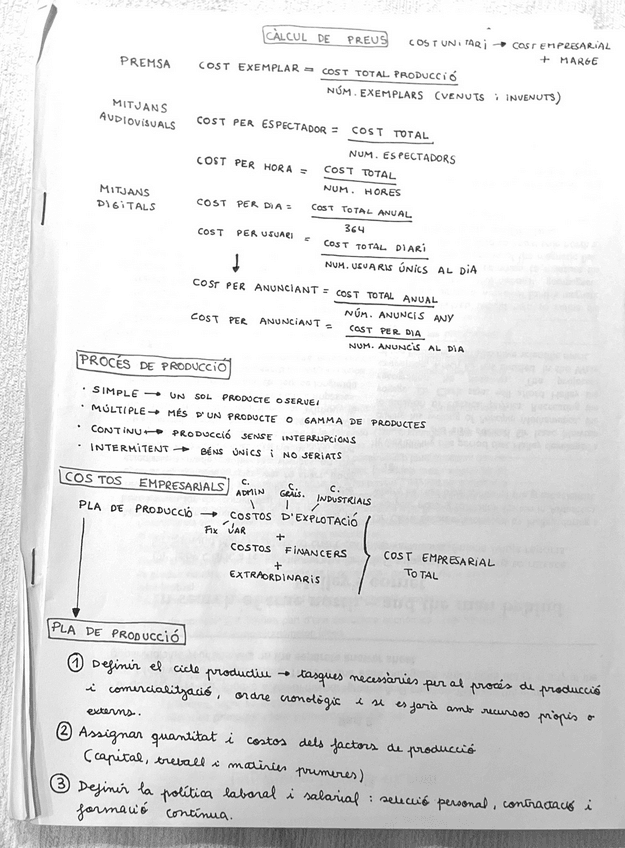 CÀLCUL DE PREUS
COST UNITARI → COST EMPRESARIAL
+ MARGE
PREMSA
COST EXEMPLAR = COST TOTAL PRODUCCIÓ
NÚM. EXEMPLARS (VENUTS i INVENUTS)
MITJANS
AUDIOVISUALS
COST PER ESPECTADOR = COST TOTAL
NUM. ESPECTADORS
COST PER HORA = COST TOTAL
NUM. HORES
MITJANS
DIGITALS
COST PER DIA = COST TOTAL ANUAL
364
COST PER USUARI = COST TOTAL DIARI
NUM. USUARIS ÚNICS AL DIA
↓
COST PER ANUNCIANT = COST TOTAL ANUAL
NÚM. ANUNCIS ANY
COST PER ANUNCIANT = COST PER DIA
NUM. ANUNCIS AL DIA
PROCÉS DE PRODUCCIÓ
· SIMPLE → UN SOL PRODUCTE O SERVEI
· MÚLTIPLE → MÉS D'UN PRODUCTE O GAMMA DE PRODUCTES
· CONTINU → PRODUCCIÓ SENSE INTERRUPCIONS
· INTERMITENT → BÉNS ÚNICS i NO SERIATS
COSTOS EMPRESARIALS
C. ADMIN C. GRALS. C. INDUSTRIALS
PLA DE PRODUCCIÓ → COSTOS D'EXPLOTACIÓ
FIX VAR
+
COSTOS FINANCERS
+
EXTRAORDINARIS
COST EMPRESARIAL
TOTAL
PLA DE PRODUCCIÓ
① Definir el cicle productiu → tasques necessàries per al procés de producció
i comercialització, ordre cronològic i si es farà amb recursos pròpis o
externs.
② Assignar quantitat i costos dels factors de producció
(capital, treball i matèries primeres)
③ Definir la política laboral i salarial : selecció personal, contractació i
formació contínua.